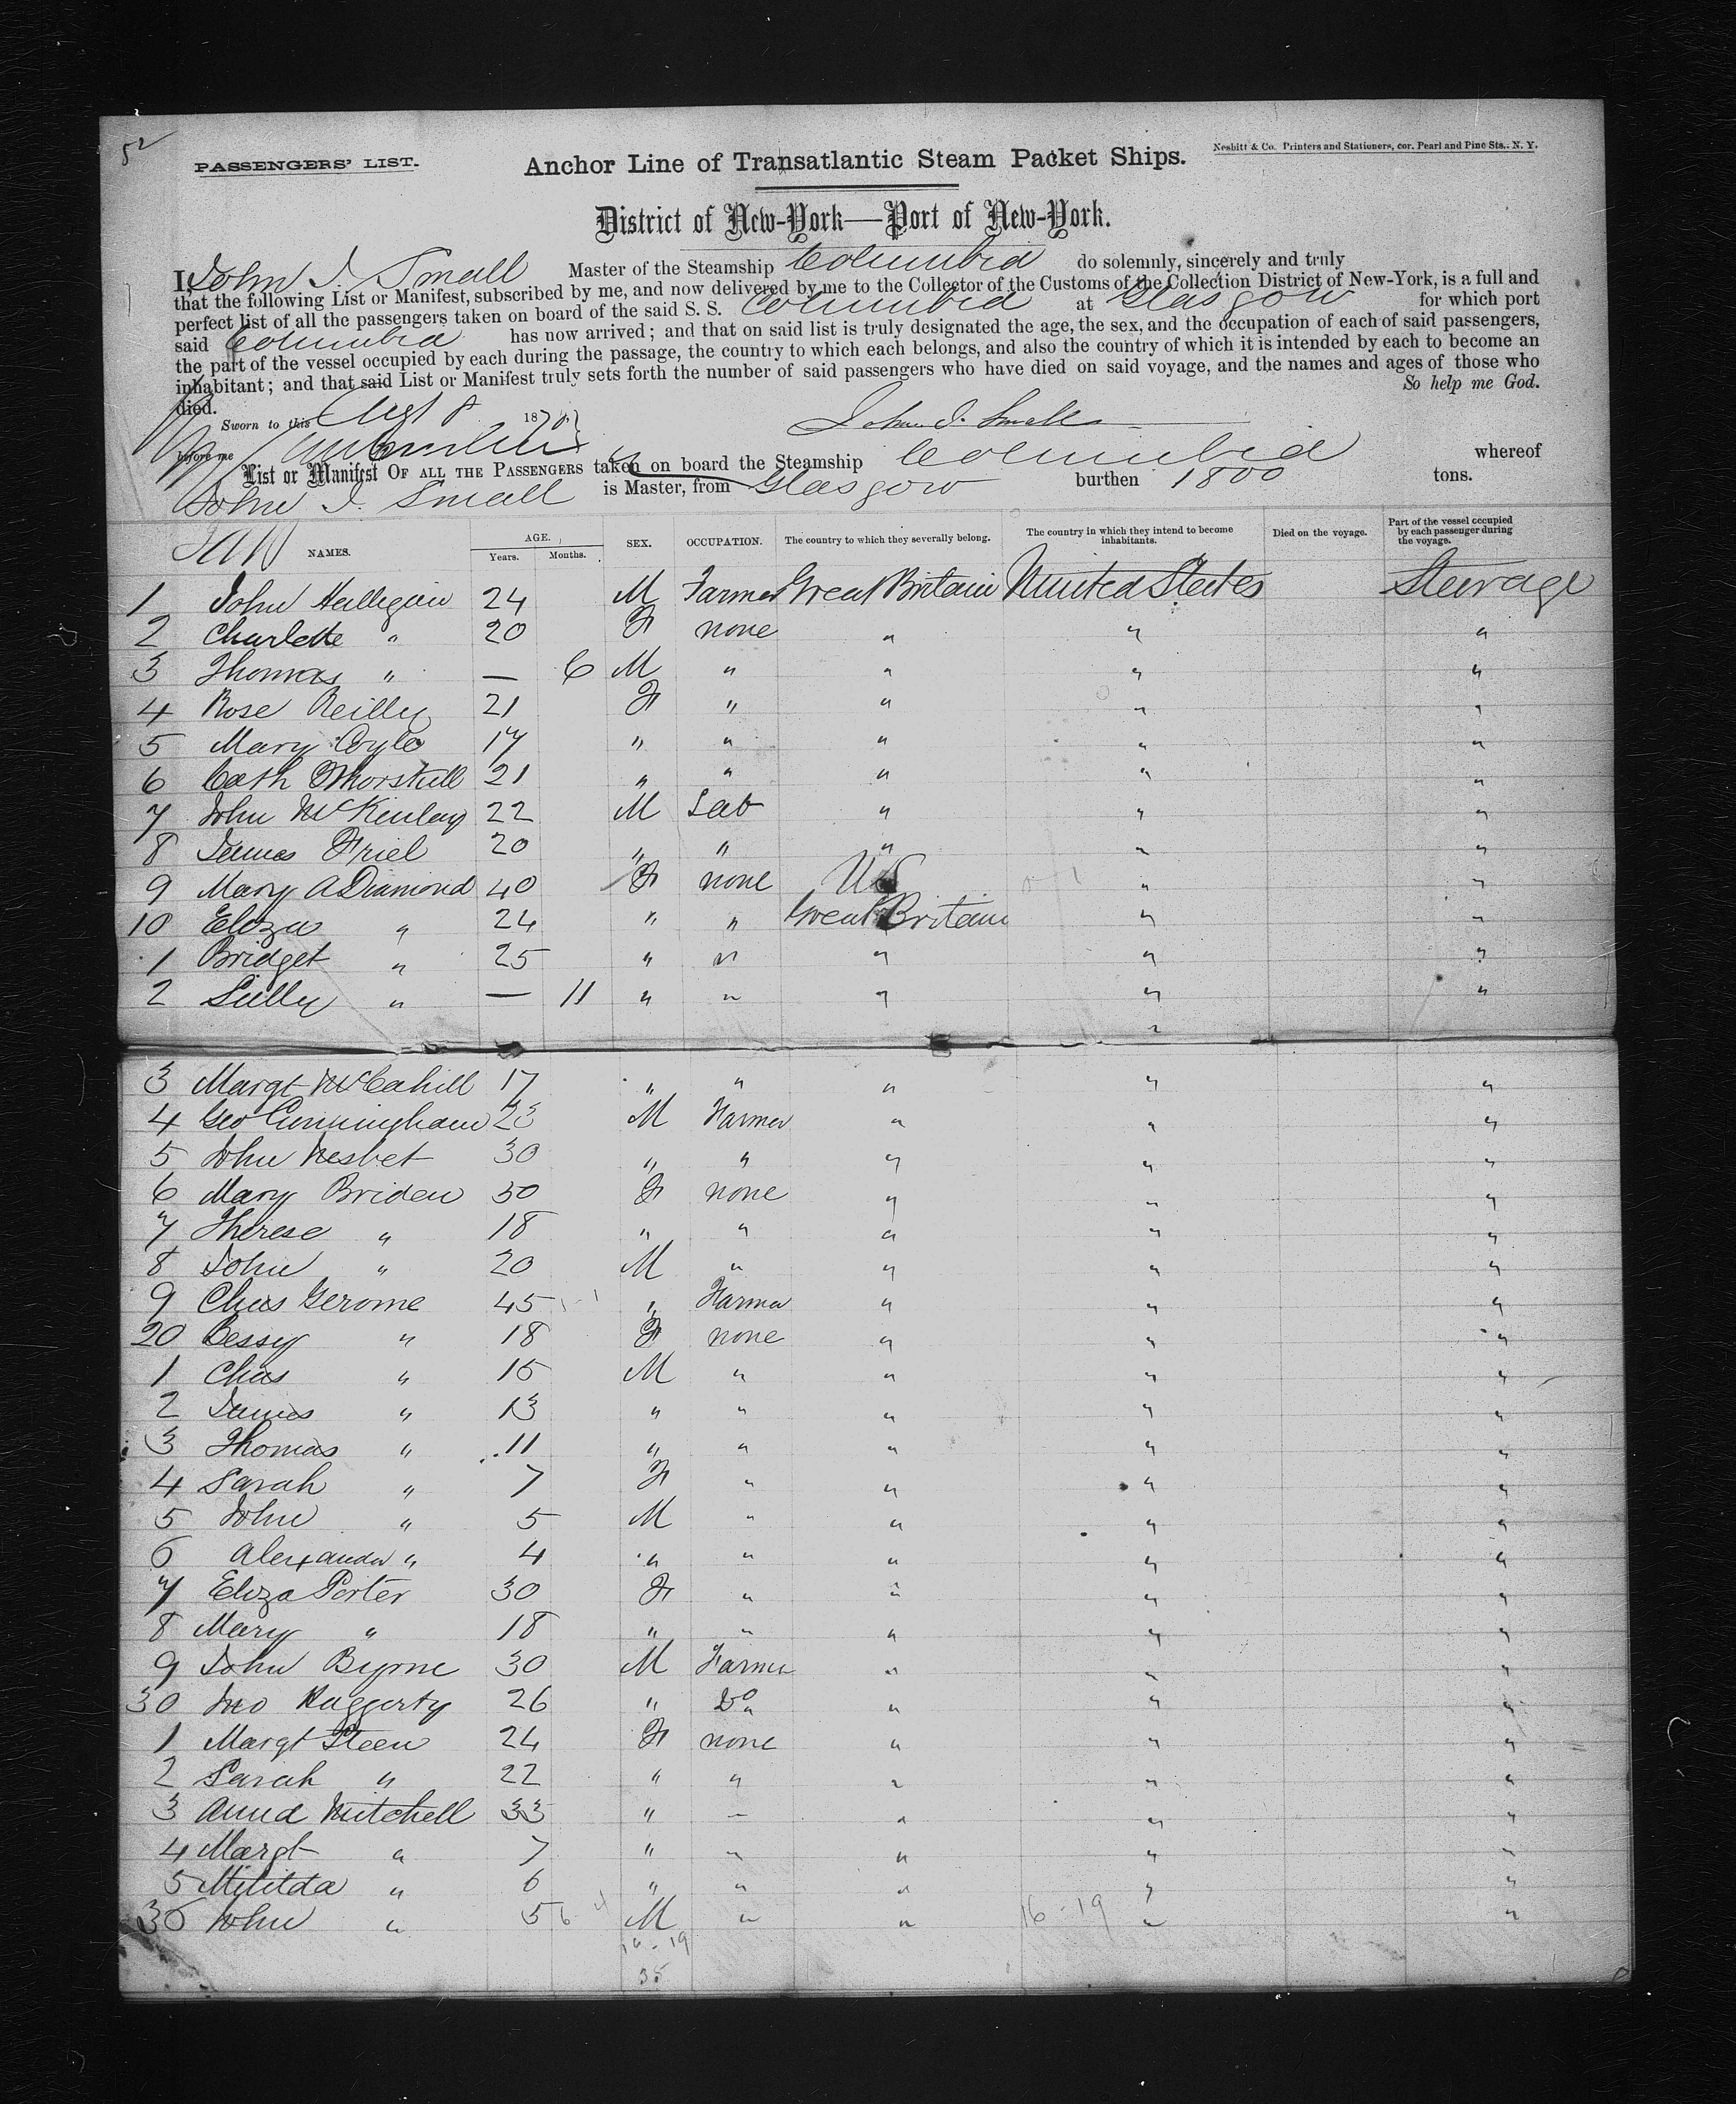 52
PASSENGERS' LIST.
Anchor Line of Transatlantic Steam Packet Ships.
Nesbitt & Co. Printers and Stationers, cor. Pearl and Pine Sts., N. Y.
District of New-York—Port of New-York.
I, John I. Small Master of the Steamship Columbia do solemnly, sincerely and truly
that the following List or Manifest, subscribed by me, and now delivered by me to the Collector of the Customs of the Collection District of New-York, is a full and
perfect list of all the passengers taken on board of the said S. S. Columbia at Glasgow for which port
said Columbia has now arrived; and that on said list is truly designated the age, the sex, and the occupation of each of said passengers,
the part of the vessel occupied by each during the passage, the country to which each belongs, and also the country of which it is intended by each to become an
inhabitant; and that said List or Manifest truly sets forth the number of said passengers who have died on said voyage, and the names and ages of those who
died. So help me God.
Sworn to this Augt 8 187
John I. Small
before me
List or Manifest OF ALL THE PASSENGERS taken on board the Steamship Columbia whereof
John I. Small is Master, from Glasgow burthen 1800 tons.
NAMES. AGE. Years. Months. SEX. OCCUPATION. The country to which they severally belong. The country in which they intend to become inhabitants. Died on the voyage. Part of the vessel occupied by each passenger during the voyage.
1 John Halligan 24 M Farmer Great Britain United States Steerage
2 Charlotte " 20 F none " " "
3 Thomas " — 6 M " " " "
4 Rose Reilly 21 F " " " "
5 Mary Coyle 17 " " " " "
6 Cath 21 " " " " "
7 John McKinlay 22 M Lab " " "
8 James Friel 20 " " " " "
9 Mary A Diamond 40 F none US " "
10 Eliza " 24 " " Great Britain " "
1 Bridget " 25 " " " " "
2 Lilly " — 11 " " " " "
"
3 Margt McCahill 17 " " " " "
4 Geo Cunningham 23 M Farmer " " "
5 John Nesbet 30 " " " " "
6 Mary Briden 50 F none " " "
7 Therese " 18 " " " " "
8 John " 20 M " " " "
9 Chas Gerome 45 " Farmer " " "
20 Bessy " 18 F none " " "
1 Chas " 15 M " " " "
2 James " 13 " " " " "
3 Thomas " 11 " " " " "
4 Sarah " 7 F " " " "
5 John " 5 M " " " "
6 Alexander " 4 " " " " "
7 Eliza Porter 30 F " " " "
8 Mary " 18 " " " " "
9 John Byrne 30 M Farmer " " "
30 Jno Haggerty 26 " Do " " "
1 Margt Steen 24 F none " " "
2 Sarah " 22 " " " " "
3 Anna Mitchell 33 " — " " "
4 Margt " 7 " " " " "
5 Mitilda " 6 " " " " "
36 John " 5 M " " 16-19 " "
16-19
35